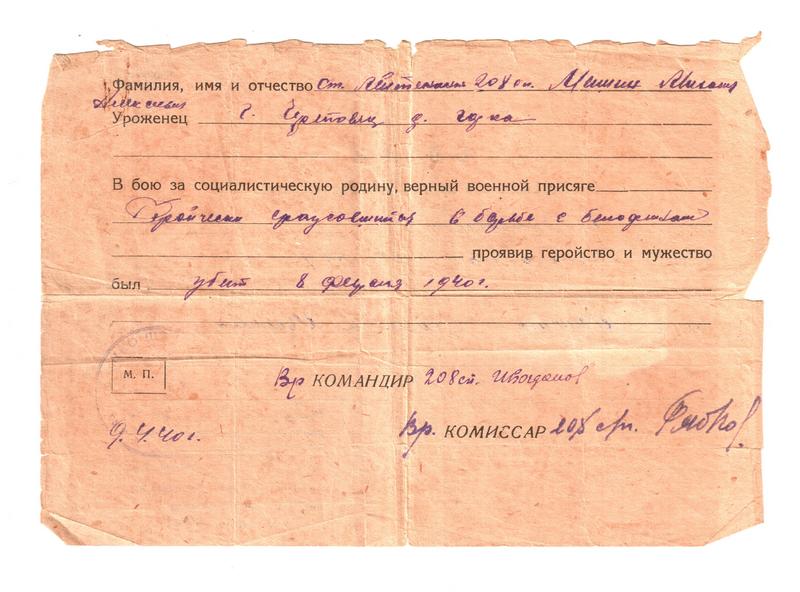 Фамилия, имя и отчество ст. лейтенант 208 сп. Мишин Михаил
Алексеевич
Уроженец г. Череповец д.
В бою за социалистическую родину, верный военной присяге
Геройчески сражавшийся в борьбе с белофинами
проявив геройство и мужество
был убит 8 февраля 1940 г.
М. П.
Вр КОМАНДИР 208 сп. Богданов
9.4.40 г.
Вр. КОМИССАР 208 сп.